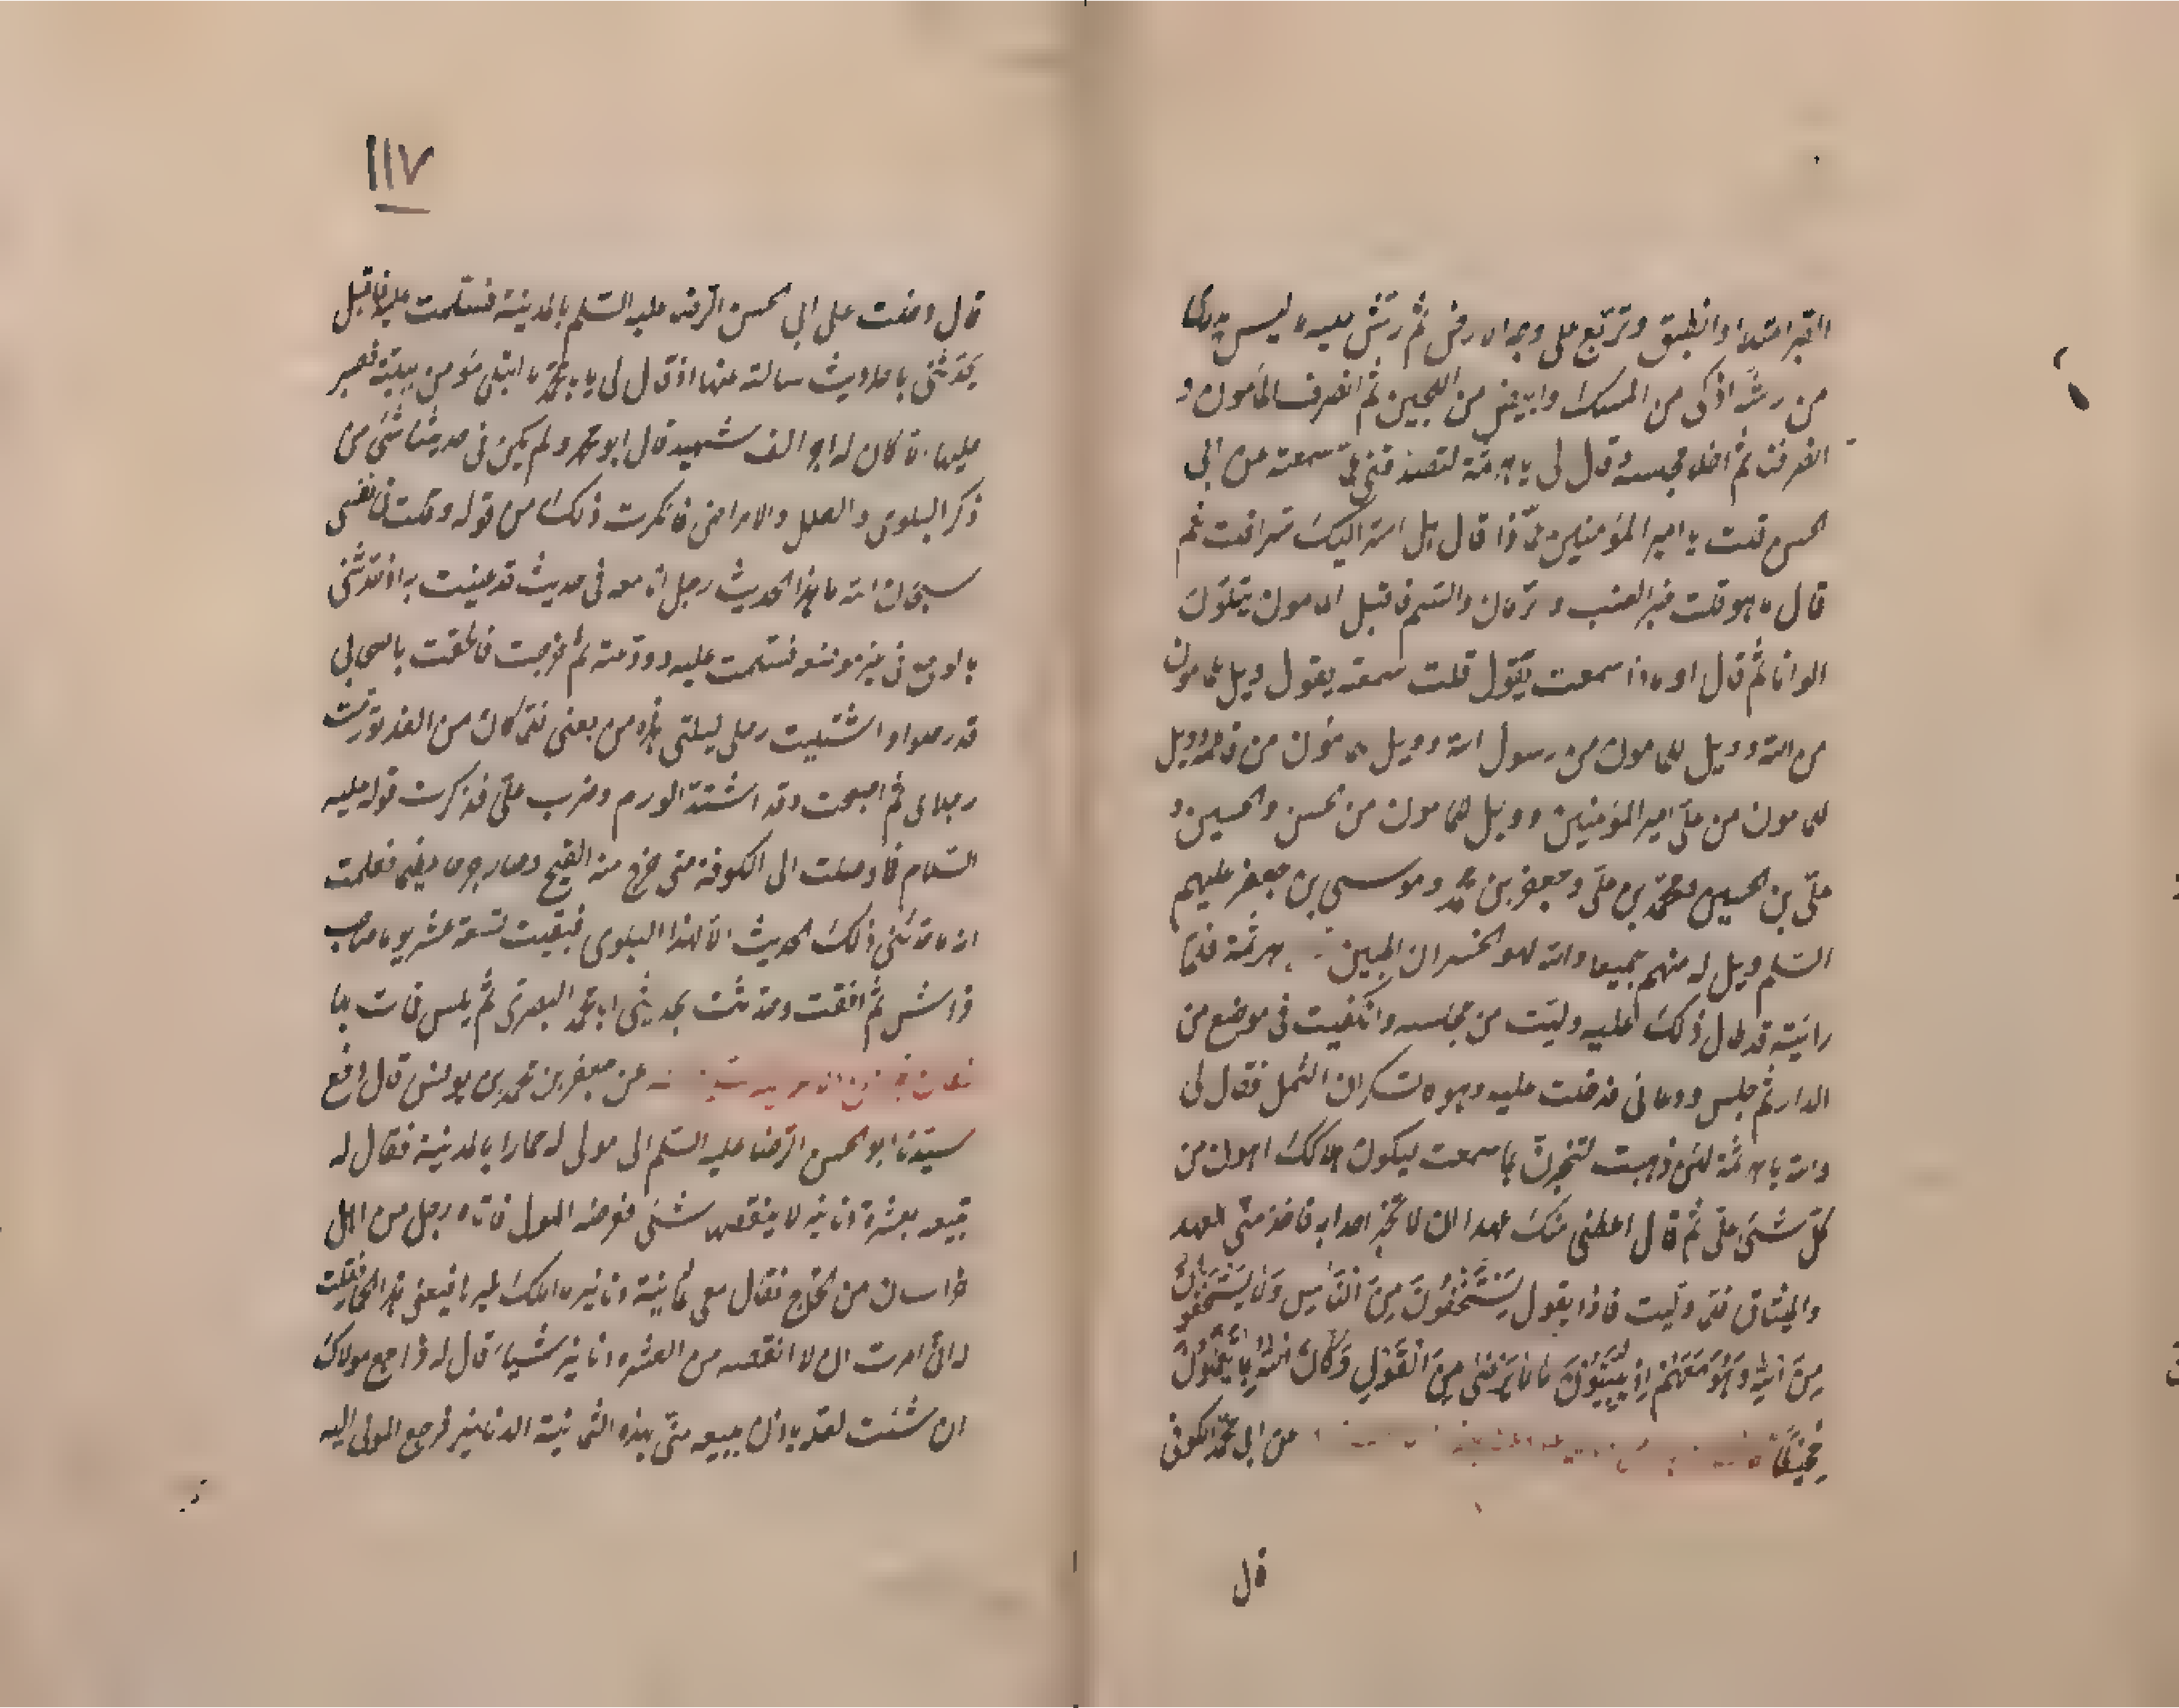 القبر امتدا وانطبق وتربع على وجه الارض ثم رش عليه ما ليس
من رش اذكى من المسك وابيض من اللجين ثم انصرف المامون و
انصرفت ثم اخلا مجلسه وقال لى يا هرثمة لتصدقنى بما سمعته من ابى
الحسن قلت يا امير المؤمنين بما ذا قال بل اسر اليك سرا قلت نعم
قال ما هو قلت خبر العنب والرمان والسم فاقبل المامون يتلون
الوانا ثم قال اوماذا سمعت يقول قلت سمعته يقول ويل للمامون
من الله وويل للمامون من رسول الله وويل للمامون من فاطمة وويل
للمامون من على امير المؤمنين وويل للمامون من الحسن والحسين و
على بن الحسين ومحمد بن على وجعفر بن محمد وموسى بن جعفر عليهم
السلم ويل له منهم جميعا والله لهو الخسران المبين هرثمة فلما
رايته قد طال ذلك عليه وليت من مجلسه وانكفيت فى موضع من
الدار ثم جلس ودعانى فدخلت عليه وهو كالسكران الثمل فقال لى
والله يا هرثمة لئن ذهبت لتخبرن بما سمعت ليكون هلاكك اهون من
كل شىء على ثم قال اعطنى منك عهدا ان لا تخبر احدا به فاخذ منى العهد
والميثاق فلما وليت فاذا يقول يَسْتَخْفُونَ مِنَ النَّاسِ وَلَا يَسْتَخْفُونَ
مِنَ اللهِ وَهُوَ مَعَهُمْ اِذْ يُبَيِّتُونَ مَا لَا يَرْضَى مِنَ الْقَوْلِ وَكَانَ اللهُ بِمَا يَعْمَلُونَ
مُحِيطًا عن ابى محمد الكوفى
قال
١١٧
قال دخلت على ابى الحسن الرضا عليه السلم بالمدينة فسلمت عليه فاقبل
يحدثنى باحاديث سالته عنها اذ قال لى يا با محمد ما ابتلى مؤمن ببلية فصبر
عليها الا كان له اجر الف شهيد قال ابو محمد ولم يكن فى حديثنا شىء من
ذكر البلوى والعلل والامراض فانكرت ذلك من قوله وقلت فى نفسى
سبحان الله ما هذا الحديث رجل انا معه فى حديث قد عنيت به اذ حدثنى
بالوجع فى غير موضعه فسلمت عليه وودعته ثم خرجت فلحقت باصحابى
قد رحلوا واشتكيت رجلى ليلتى هذه من بعض فلما كان من الغد تورمت
رجلاى ثم اصبحت وقد اشتد الورم وضرب على فذكرت قوله عليه
السلام فلما وصلت الى الكوفة حتى خرج منه القيح وصار جرحا عظيما فعلمت
انه ما حدثنى ذلك الحديث الا لهذا البلوى فبقيت تسعة عشر يوما صاحب
فراش ثم افقت وحدثت بحديثى ابا محمد البصرى ثم فمات بها
عن جعفر بن محمد بن يونس قال دفع
سيدنا ابو الحسن الرضا عليه السلم الى مولى له حمارا بالمدينة فقال له
تبيعه بعشرة دنانير لا ينقصها شىء فعرضه المولى فاتاه رجل من اهل
خراسان من الحاج فقال معى ثمانية دنانير ما املك غيرها فبعنى هذا الحمار فقلت
له انى امرت ان لا انقصه من العشرة دنانير شيئا قال له فراجع مولاك
ان شئت لعله ياذن ببيعه منى بهذه الثمانية الدنانير فرجع المولى اليه